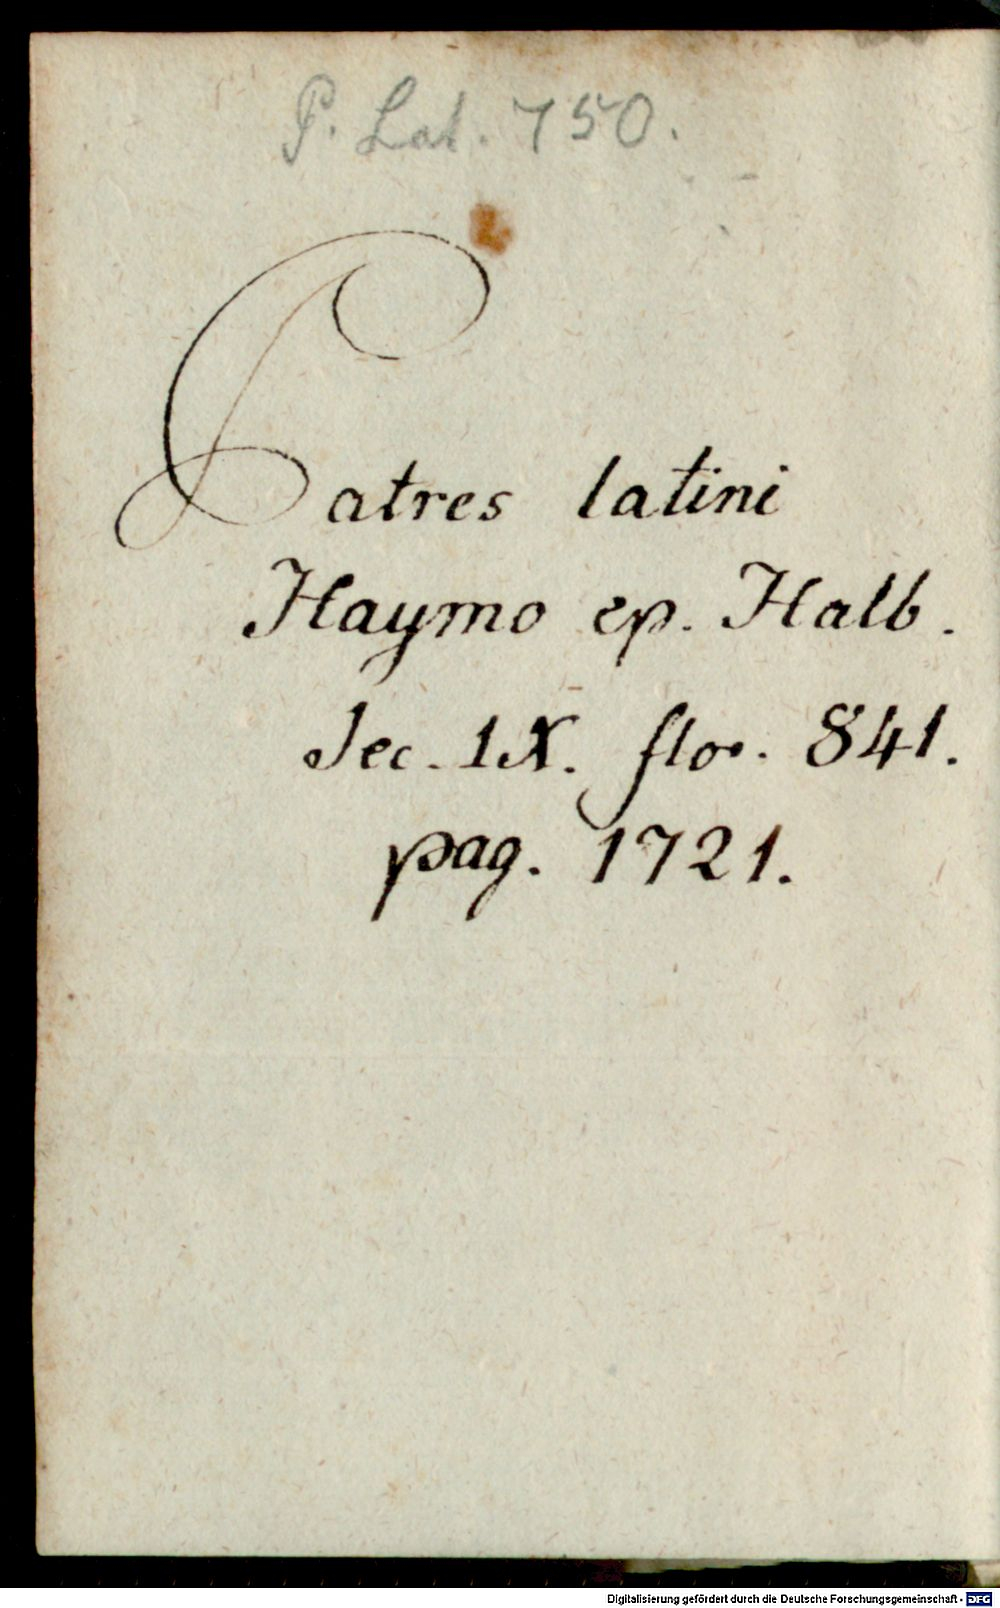 P. Lat. 750.
Patres latini
Haymo ep. Halb.
Sec. IX. flor. 841.
pag. 1721.
Digitalisierung gefördert durch die Deutsche Forschungsgemeinschaft - DFG